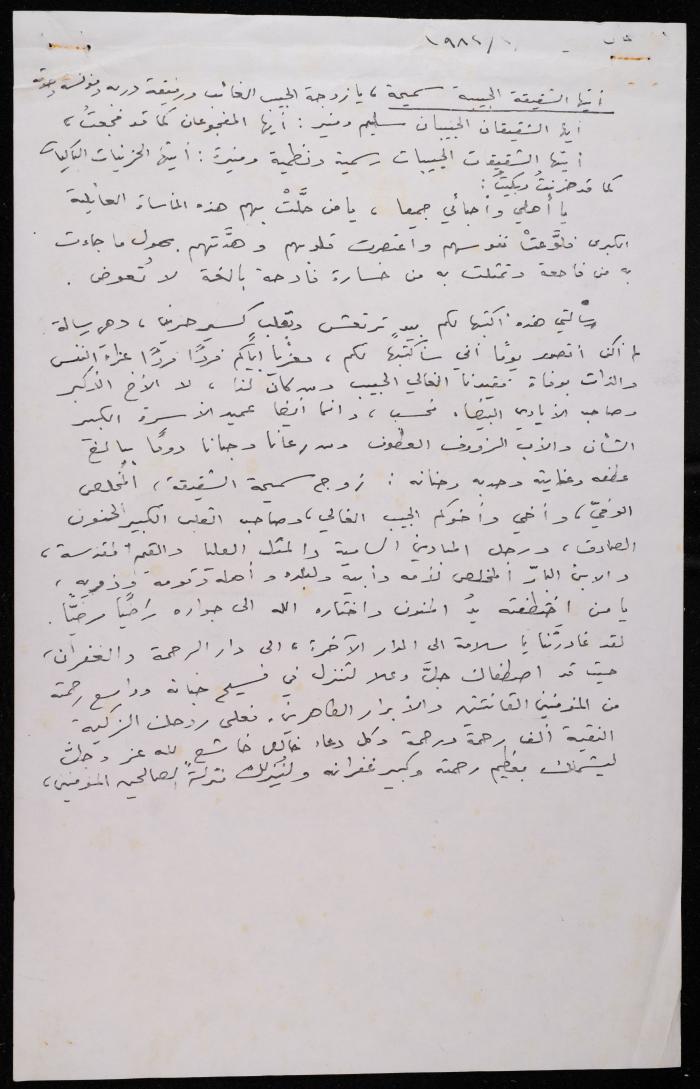 ١٩٨٢/
أيتها الشقيقة الحبيبة سميحة ، يا زوجة الحبيب الغائب ورفيقة دربه ومؤنسة
أيها الشقيقان الحبيبان سليم ومنير : أيها المفجوعان كما قد فجعتُ ،
أيتها الشقيقات الحبيبات رسمية ونظمية ومنيرة : أيتها الحزينات الباكيات
كما قد حزنتُ وبكيتُ :
يا أهلي وأحبائي جميعا ، يا من حلَّتْ بهم هذه المأساة العائلية
الكبرى فلوَّعتْ نفوسهم واعتصرت قلوبهم وهدَّتهم بهول ما جاءت
به من فاجعة وتمثلت به من خسارة فادحة بالغة لا تُعوض .
رسالتي هذه أكتبها لكم بيدٍ ترتعش وبقلب كسير حزين ، وهي رسالة
لم أكن أتصور يومًا أني سأكتبها لكم ، معزّيا إياكم فردًا فردًا عزاءَ النفس
والذات بوفاة فقيدنا الغالي الحبيب ومن كان لنا ، لا الأخ الأكبر
وصاحب الأيادي البيضاء فحسب ، وانما أيضا عميد الأسرة الكبير
الشأن والأب الرؤوف العطوف ومن رعانا وحبانا دومًا ببالغ
عطفه وعنايته وحدبه وحنانه : زوج سميحة الشقيقة ، المُخلص
الوفيّ ، وأخي وأخوكم الحبيب الغالي ، وصاحب القلب الكبير الحنون
الصادق ، ورجل المبادئ السامية والمثل العليا والقيم المقدسة ،
والابن البارّ المخلص لأمه وأبيه ولبلده وأهله وقومه وذويه ،
يا من اختطفته يدُ المنون واختاره الله الى جواره راضيًا مرضيًّا .
لقد غادرتَنا يا سلامة الى الدار الآخرة ، الى دار الرحمة والغفران ،
حيث قد اصطفاك جلَّ وعلا لتنزل في فسيح جنانه وواسع رحمته
من المؤمنين القانتين والأبرار الطاهرين . فعلى روحك الزكية
النقية ألف رحمة ورحمة وكل دعاء خالص خاشع لله عز وجلّ
ليشملك بعظيم رحمته وكبير غفرانه وليُنزلك منزلةَ الصالحين المؤمنين ،